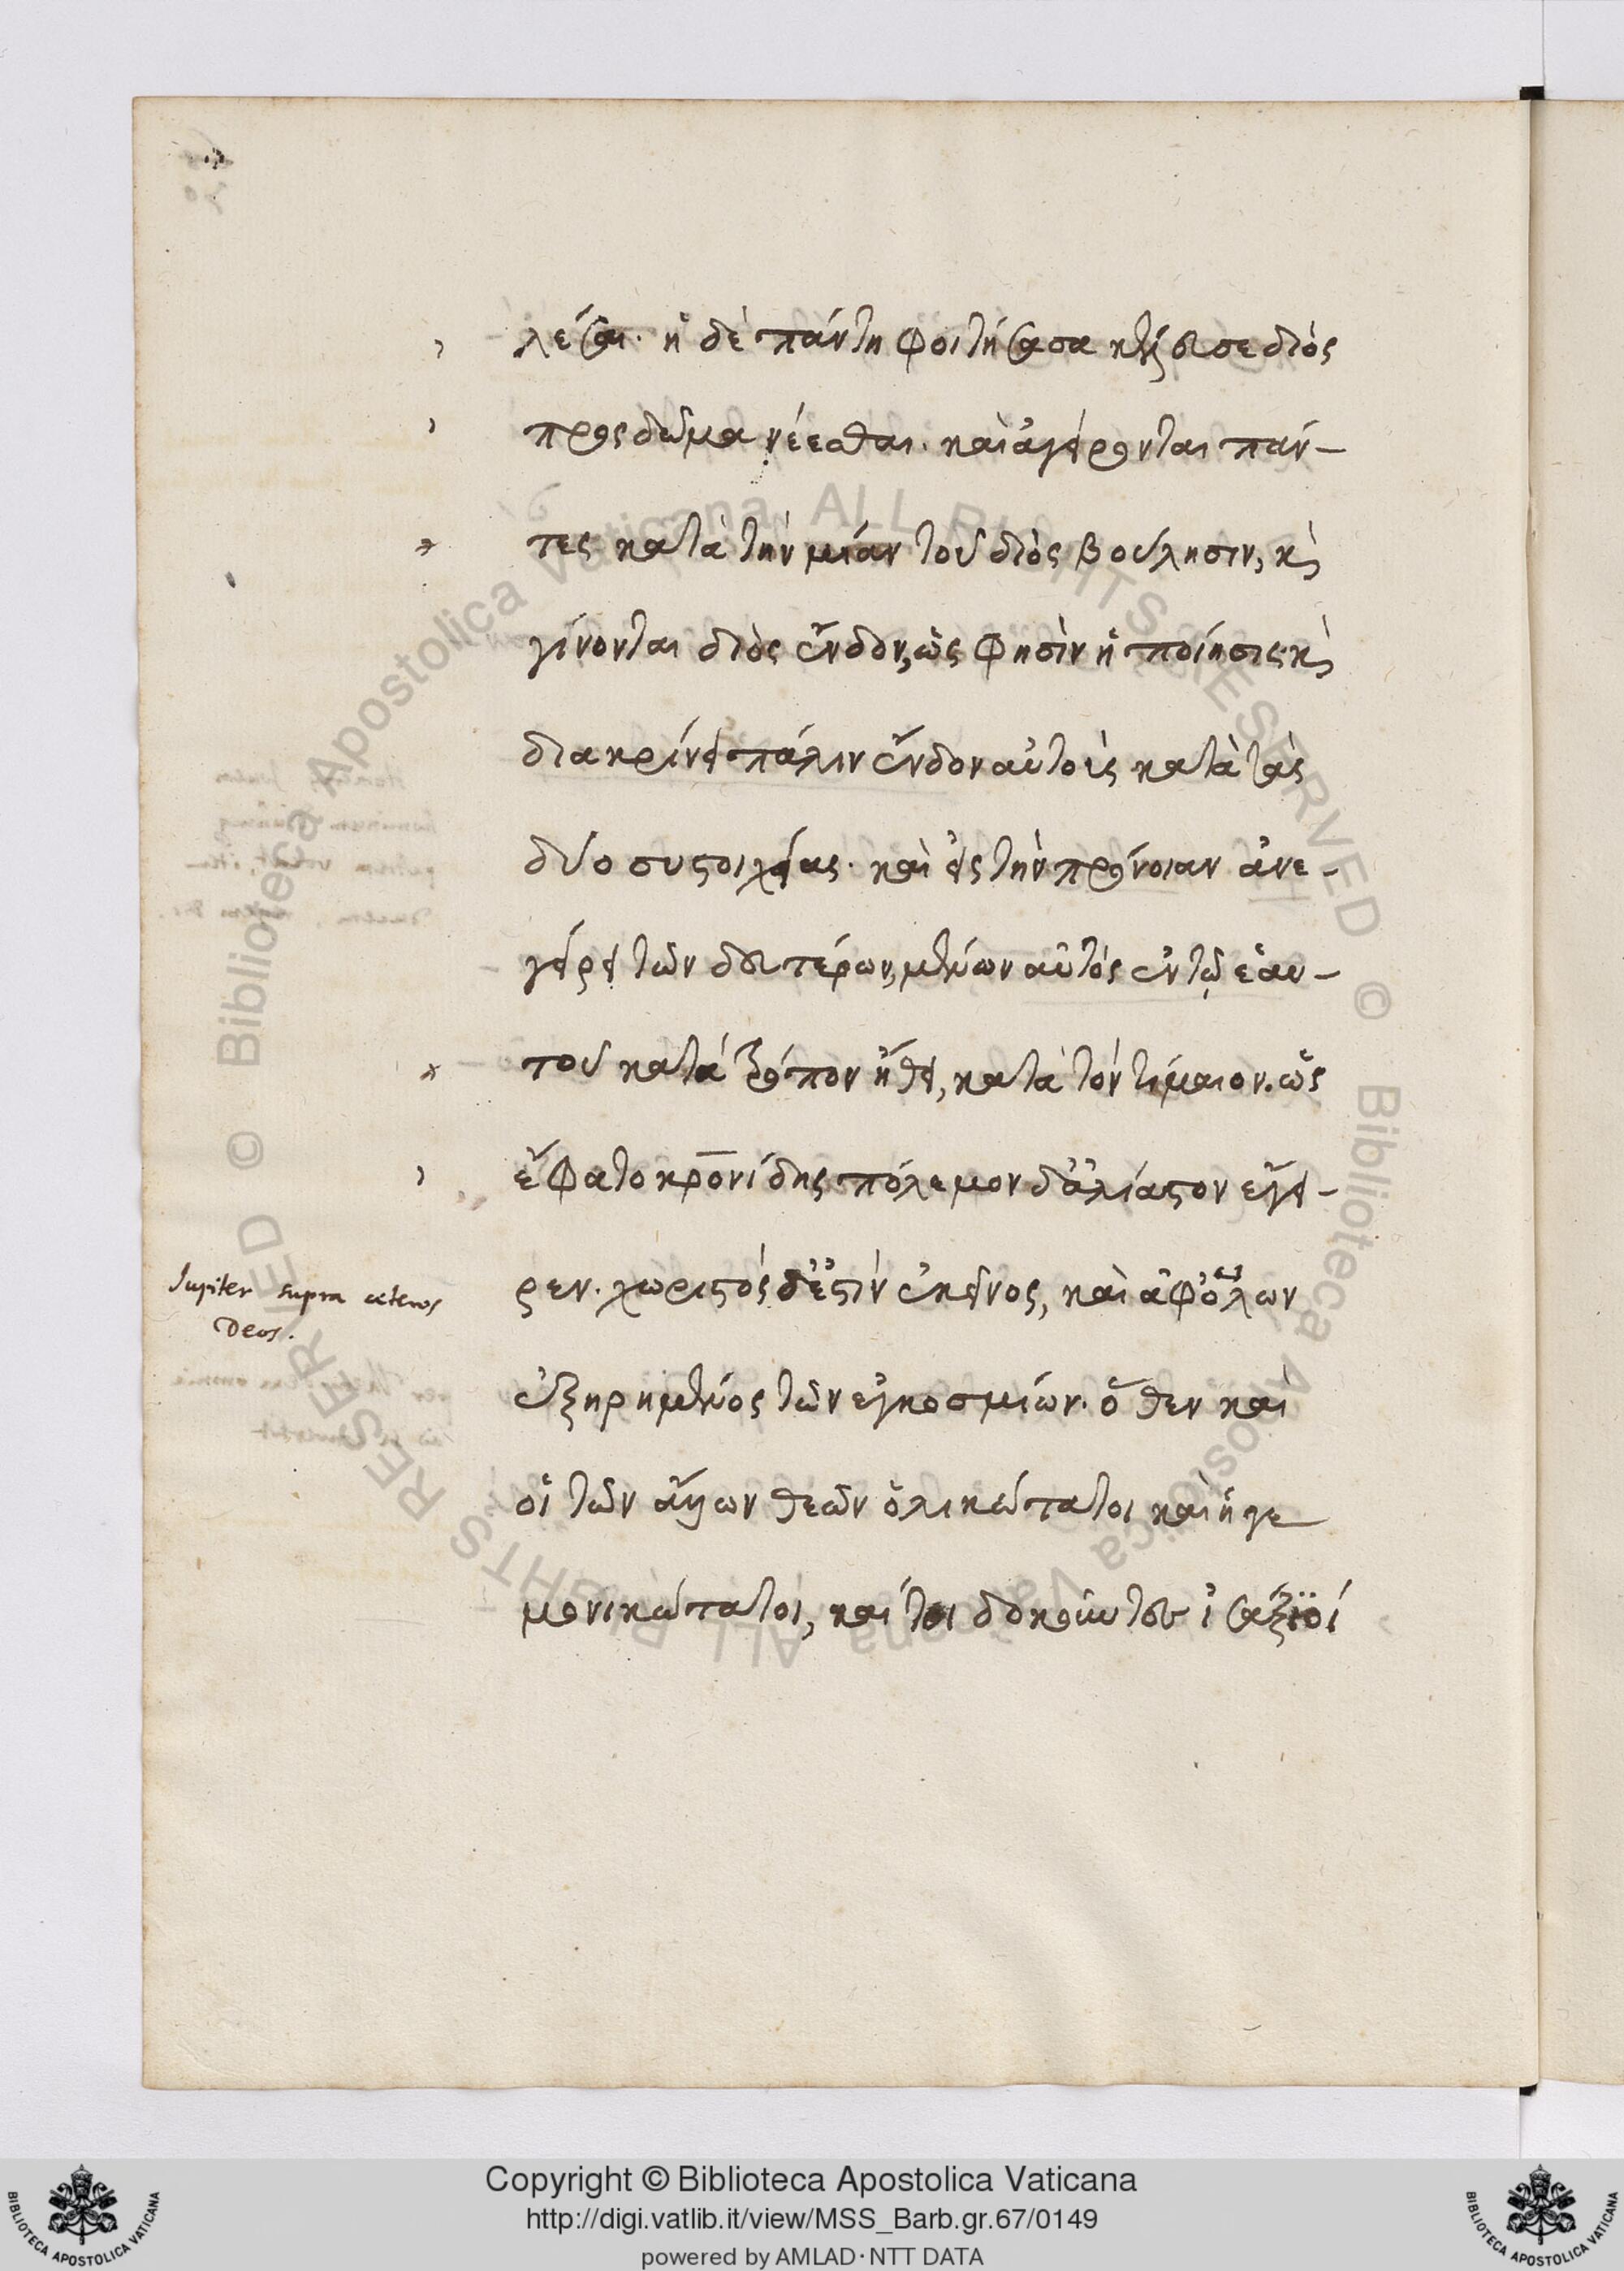 λέσσαι. ἡ δὲ πάντη φοιτήσασα κέλευσε διὸς
πρὸς δῶμα νέεσθαι. καὶ ἀγείρονται πάν-
τες κατὰ τὴν μίαν τοῦ διὸς βούλησιν, κὶ
γίνονται διὸς ἔνδον, ὥς φησὶν ἡ ποίησις. κὶ
διακρίνει πάλιν ἔνδον αὐτοὺς κατὰ τὰς
δύο συστοιχείας. καὶ εἰς τὴν πρόνοιαν ἀνε-
γείρει τῶν δευτέρων, μένων αὐτὸς ἐν τῷ ἑαυ-
τοῦ κατὰ τρόπον ἤθει, κατὰ τὸν τίμαιον. ὣς
ἔφατο κρονίδης πόλεμον δ' ἀλίαστον ἔγει-
ρεν. χωριστὸς δέ ἐστιν ἐκεῖνος, καὶ ἀφ' ὅλων
Jupiter supra ceteros
Deos.
ἐξηρημένος τῶν ἐγκοσμίων. ὅθεν καὶ
οἱ τῶν ἄλλων θεῶν ὁλικώτατοι καὶ ἡγε
μονικώτατοι, καίτοι δοκοῦντες
Copyright © Biblioteca Apostolica Vaticana
http://digi.vatlib.it/view/MSS_Barb.gr.67/0149
powered by AMLAD · NTT DATA
BIBLIOTECA APOSTOLICA VATICANA
BIBLIOTECA APOSTOLICA VATICANA
© Biblioteca Apostolica Vaticana ALL RIGHTS RESERVED
© Biblioteca Apostolica Vaticana ALL RIGHTS RESERVED